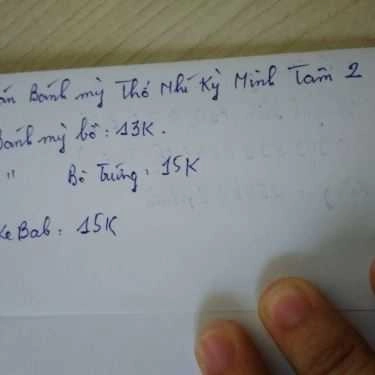 án Bánh mỳ Thổ Nhĩ Kỳ Minh Tâm 2
Bánh mỳ bò: 13K.
" Bò Trứng: 15K
KeBab: 15K